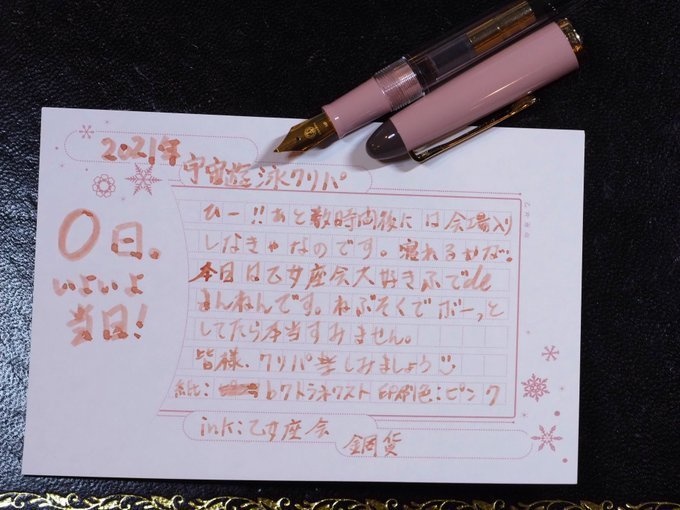 2021年
宇宙遊泳クリパ
0日。
いよいよ
当日!
ひー!!あと数時間後には会場入り
しなきゃなのです。寝れるかな。
本日は乙女座会大好きふでde
まんねんです。ねぶそくでボーっと
してたら本当すみません。
皆様、クリパ楽しみましょう
紙: b7トラネクスト 印刷色:ピンク
ink:乙女座会
銅貨